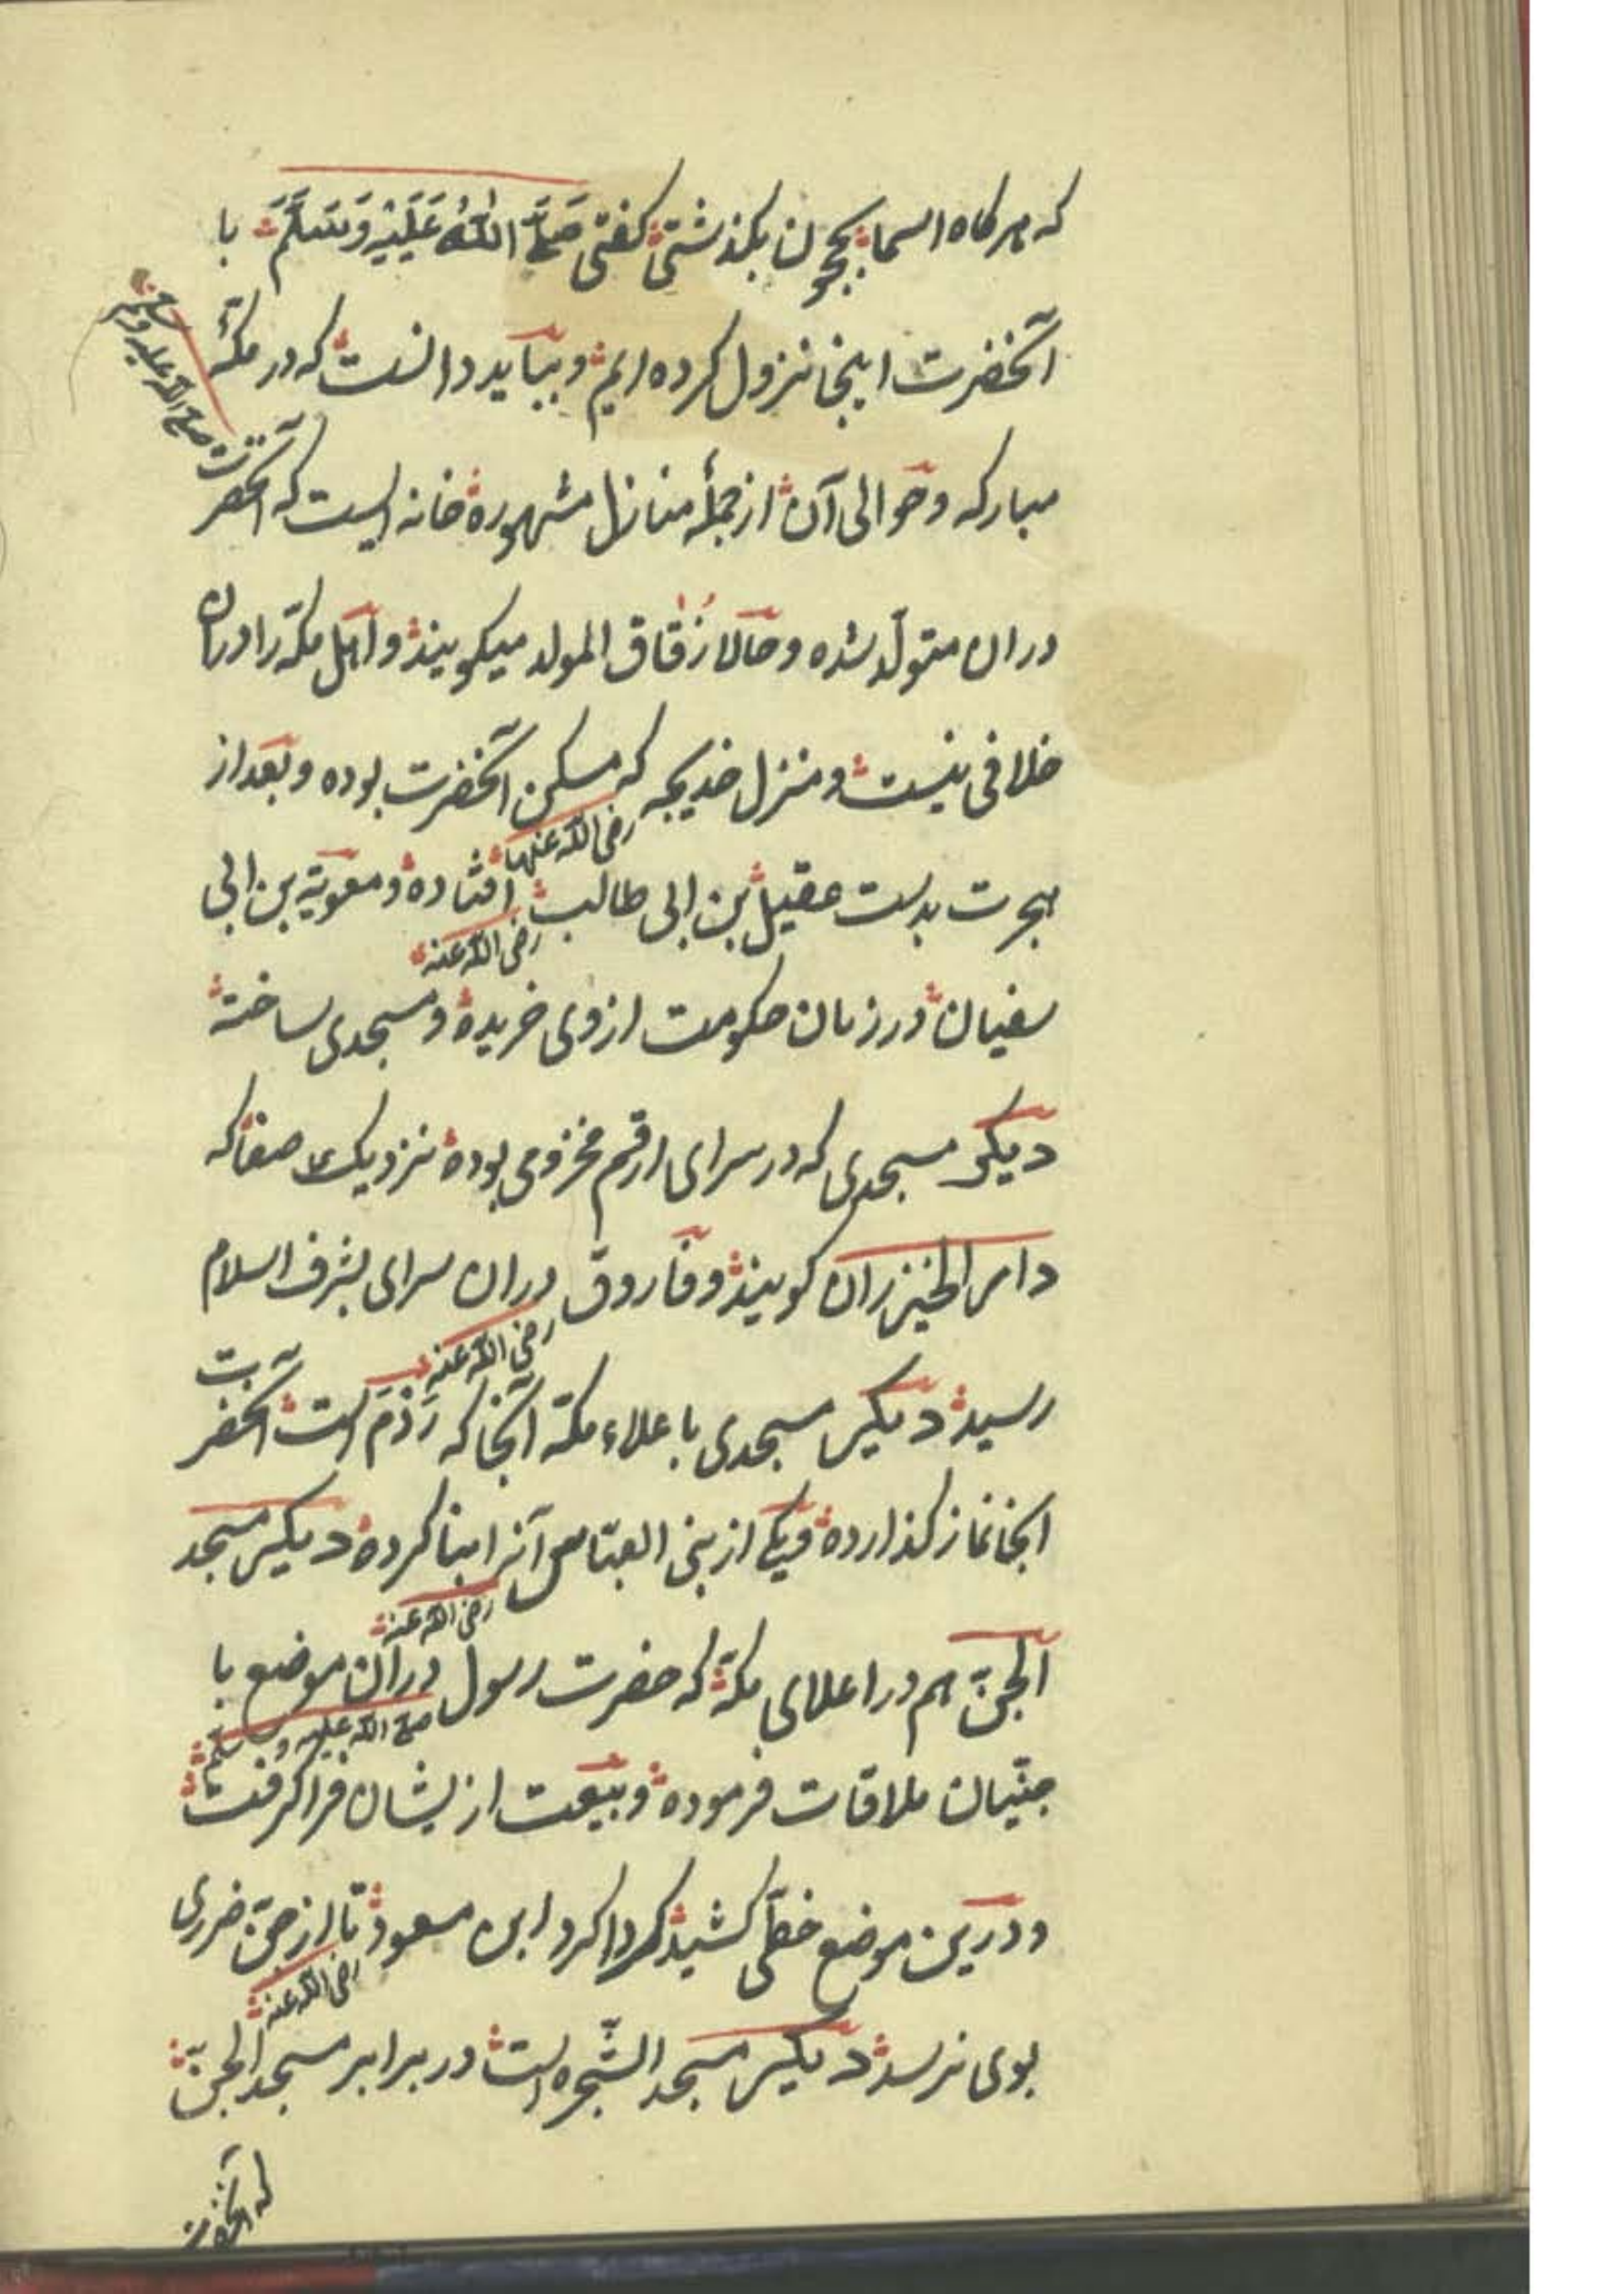 که هرگاه اسما بحجون بگذشتی گفتی صَلَّی اللّٰهُ عَلَیْهِ وَسَلَّمَ با
آنحضرت اینجا نزول کرده ایم و بباید دانست که در مکّهٔ
مبارکه و حوالی آن از جملهٔ منازل مشهوره خانه ایست که آنحضرت صلی الله علیه وسلم
دران متولّد شده و حالا زُقاق المولد میکویند و اهل مکّه را دران
خلافی نیست و منزل خدیجه رضی الله عنها که مسکن آنحضرت بوده و بعد از
هجرت بدست عقیل بن ابی طالب رضی الله عنه افتاده و معویة بن ابی
سفیان در زمان حکومت از وی خریده و مسجدی ساخته
دیکر مسجدی که در سرای ارقم مخزومی بوده نزدیک صفا که
دار الخیزران کویند و فاروق رضی الله عنه دران سرای بشرف اسلام
رسید دیکر مسجدی با علاء مکّه آنجا که رَدَم است آنحضرت
انجا نماز کذارده و یکی از بنی العبّاس رضی الله عنه آنرا بنا کرده دیکر مسجد
الجنّ هم در اعلای مکّه که حضرت رسول صلی الله علیه وسلم دران موضع با
جنّیان ملاقات فرموده و بیعت ازیشان فرا کرفت
و درین موضع خطّی کشید کرداکرد ابن مسعود رضی الله عنه تا از جنّ ضرری
بوی نرسد دیکر مسجد الشّجره است در برابر مسجد الجنّ
که آنحضرت